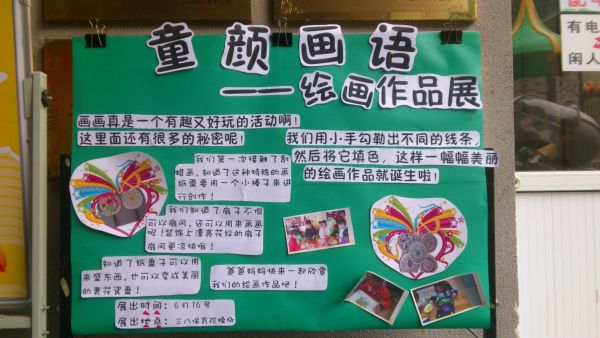 童颜画语
——绘画作品展
画画真是一个有趣又好玩的活动啊!
这里面还有很多的秘密呢!
我们用小手勾勒出不同的线条,
然后将它填色,这样一幅幅美丽
的绘画作品就诞生啦!
我们第一次接触了刮
蜡画,知道了这种特殊的画
纸需要用一个小棒子来进
行创作!
我们知道了扇子不但
可以扇风,还可以用来画画
呢!装饰上漂亮花纹的扇子
扇风更凉快哦!
知道了纸盘子可以用
来盛东西,也可以变成美丽
的青花瓷盘!
爸爸妈妈快来一起欣赏
我们的绘画作品吧!
展出时间:6月16号
展出地点:三八保育院操场
有电
闲人